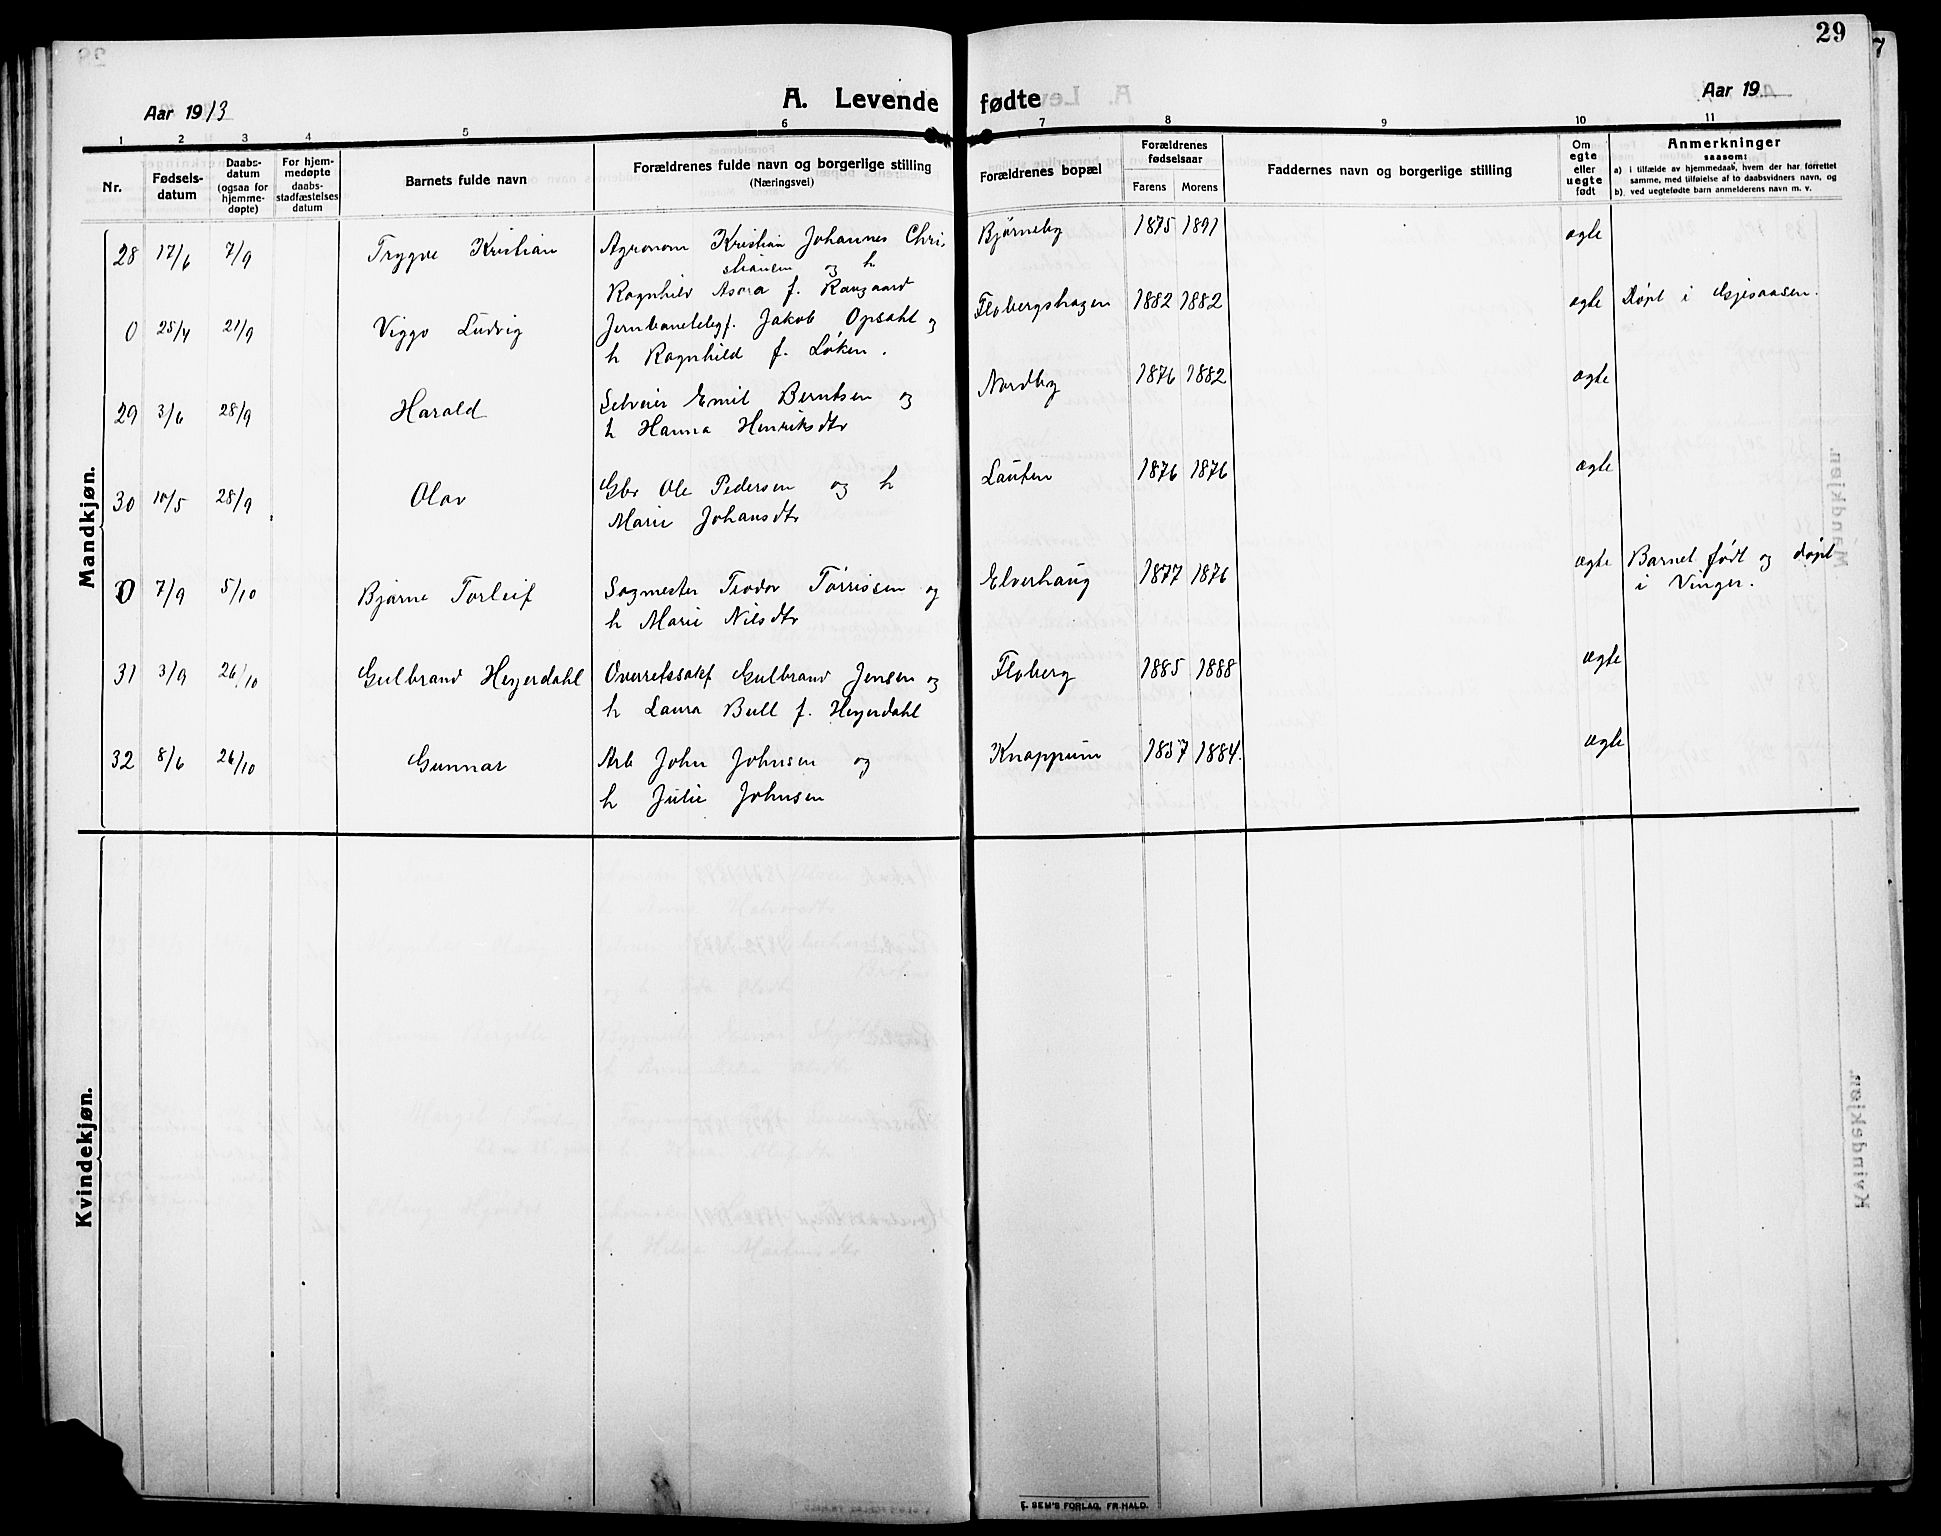 29
Aar 1913
A. Levende fødte
Aar 19
1 2 3 4 5 6 7 8 9 10 11
Nr.
Fødsels-
datum
Daabs-
datum
(ogsaa for
hjemme-
døpte)
For hjem-
medøpte
daabs-
stadfæstelses
datum
Barnets fulde navn
Forældrenes fulde navn og borgerlige stilling
(Næringsvei)
Forældrenes bopæl
Forældrenes
fødselsaar
Farens Morens
Faddernes navn og borgerlige stilling
Om
egte
eller
uegte
født
Anmerkninger
saasom:
a) i tilfælde av hjemmedaab, hvem der har forrettet
samme, med tilføielse af to daabsvidners navn, og
b) ved uegtefødte barn anmelderens navn m. v.
Mandkjøn.
28 17/6 7/9 Trygve Kristian Agronom Kristian Johannes Chri- Bjørneby 1875 1891 ægte
stiansen og h
Ragnhild Asora f. Rangaard
0 25/4 21/9 Viggo Ludvig Jernbanetelegf. Jakob Opsahl og Flobergshagen 1882 1882 ægte Døpt i Gjesaasen.
h Ragnhild f. Løken.
29 3/6 28/9 Harald Selveier Emil Berntsen og Nordby 1876 1882 ægte
h Hanna Henriksdtr
30 10/5 28/9 Olav Gbr Ole Pedersen og h Lauten 1876 1876 ægte
Marie Johansdtr
0 7/9 5/10 Bjarne Torleif Sagmester Teodor Tørrissen og Elverhaug 1877 1876 ægte Barnet født og døpt
h Marie Nilsdtr i Vinger.
31 3/9 26/10 Gulbrand Heyerdahl Overretssakf Gulbrand Jensen og Floberg 1885 1888 ægte
h Laura Bull f. Heyerdahl
32 8/6 26/10 Gunnar Arb John Johnsen og Knappum 1887 1884. ægte
h Julie Johnsen
Kvindekjøn.
E. SEM'S FORLAG, FR.HALD.